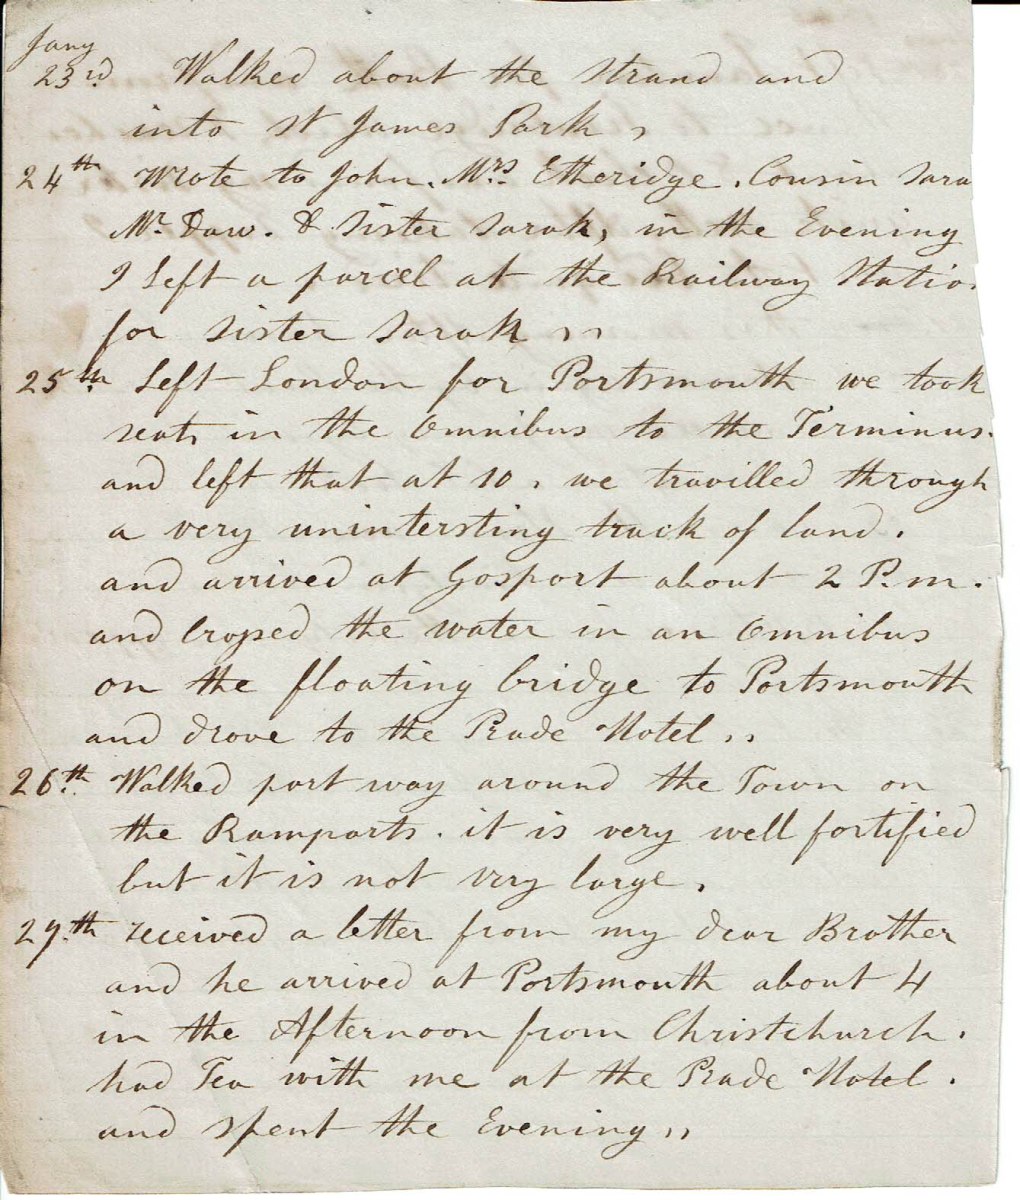 Jany
23rd. Walked about the Strand and
into St James Park,
24th Wrote to John. Mrs. Etheridge. Cousin Sara
Mr. Daw. & Sister Sarah, in the Evening
I Left a parcel at the Railway Statio
for Sister Sarah ,,
25th. Left London for Portsmouth we took
seats in the Omnibus to the Terminus.
and left that at 10. we travilled through
a very unintersting track of land.
and arrived at Gosport about 2 P.m.
and Crossed the water in an Omnibus
on the floating bridge to Portsmouth
and drove to the Prade Hotel ,,
26th. Walked part way around the Town on
the Ramparts. it is very well fortified
but it is not very large.
27th received a letter from my dear Brother
and he arrived at Portsmouth about 4
in the Afternoon from Christchurch.
had Tea with me at the Prade Hotel.
and spent the Evening ,,